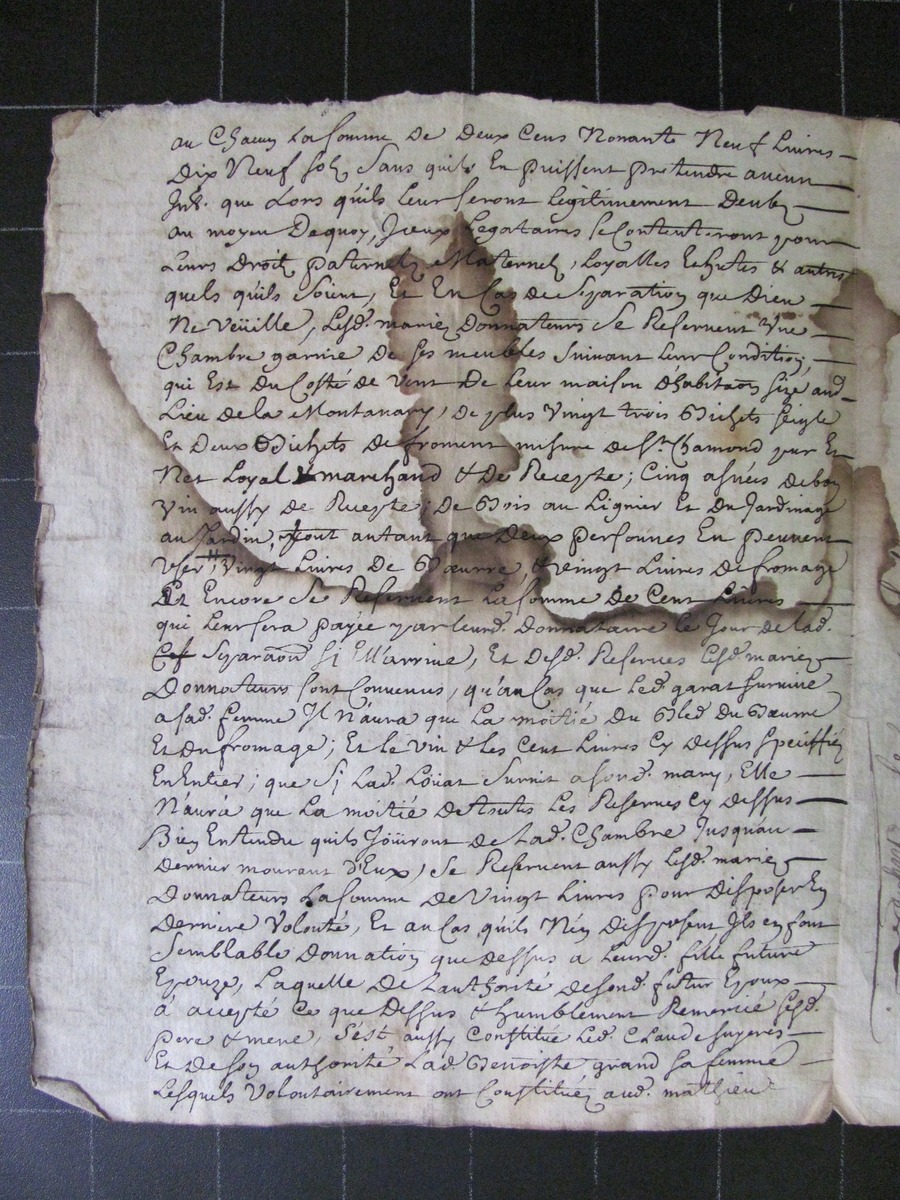 au Chacun La somme De Deux Cens Nonante Neuf Livres
Dix Neuf sols Sans quils En puissent pretendre aucun
que Lors quils Leur seront legitimement Deubz
au moyen Dequoy, Iceux Legataires se Contenteront pour
Leurs Droitz paternelz & Maternelz, Loyalles Echutes & autres
quels quils soient, Et En Cas de Separation que Dieu
Ne Veüille, Lesd. mariez Donnateurs se Reservent Vne
Chambre garnie De ses meubles suivant Leur Condition,
qui Est Du Costé de Vent De Leur maison d'habitaon size aud.
Lieu de la Montanary, De plus Vingt trois Bichets seigle
Et Deux Bichets De froment mesure de St. Chamond pur Et
Net Loyal & marchand & De Recepte; Cinq asnées de bon
Vin aussy de Recepte; De Bois au Lignier Et Du Jardinage
au Jardin, tout autant que Deux personnes En peuvent
user, Vingt Livres De Bœurre, & vingt Livres De fromage
Et Encore se Reservent La somme De Cent Livres
qui Leur sera payée par leurd. Donnataire le Jour de lad.
Separaon si Ell'arrive, Et Desd. Reserves Lesd. mariez
Donnateurs sont Convenus, qu'au Cas que Led. garat survive
a sad. femme Il N'aura que La moitié Du Bled Du Bœurre
Et Du fromage; Et le vin & les Cent Livres Cy Dessus speciffiez
En Entier; que si Lad. Loüat survit a sond. mary, Elle
N'aura que La moitié De toutes Les Reserves Cy dessus
Bien Entendu quils Joüiront de Lad. Chambre Jusqu'au
dernier mourant D'Eux, se Reservent aussy Lesd. mariez
Donnateurs La somme de Vingt Livres pour Disposer En
Derniere Volonté, Et au Cas quils N'en Disposent Ils en font
Semblable Donnation que dessus a Leurd. fille future
Epouze, Laquelle De L'authorité de sond. futur Epoux
à accepté Ce que Dessus & humblement Remercié sesd.
pere & mere, s'est aussy Constitué Led. Claude
Et De son authorité Lad. Benoiste grand sa femme
Lesquels Volontairement ont Constituéz aud. mathieu